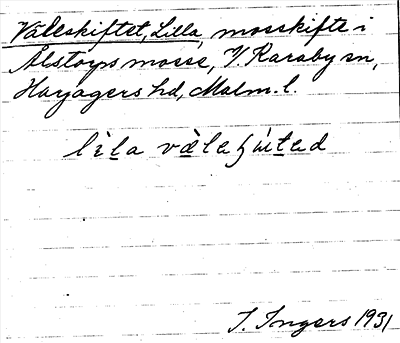 Väleskiftet, Lilla, mosskifte i
Ålstorps mosse, V. Karaby sn,
Harjagers hd, Malm. l.
lìla vàleʃìted
I. Ingers 1931